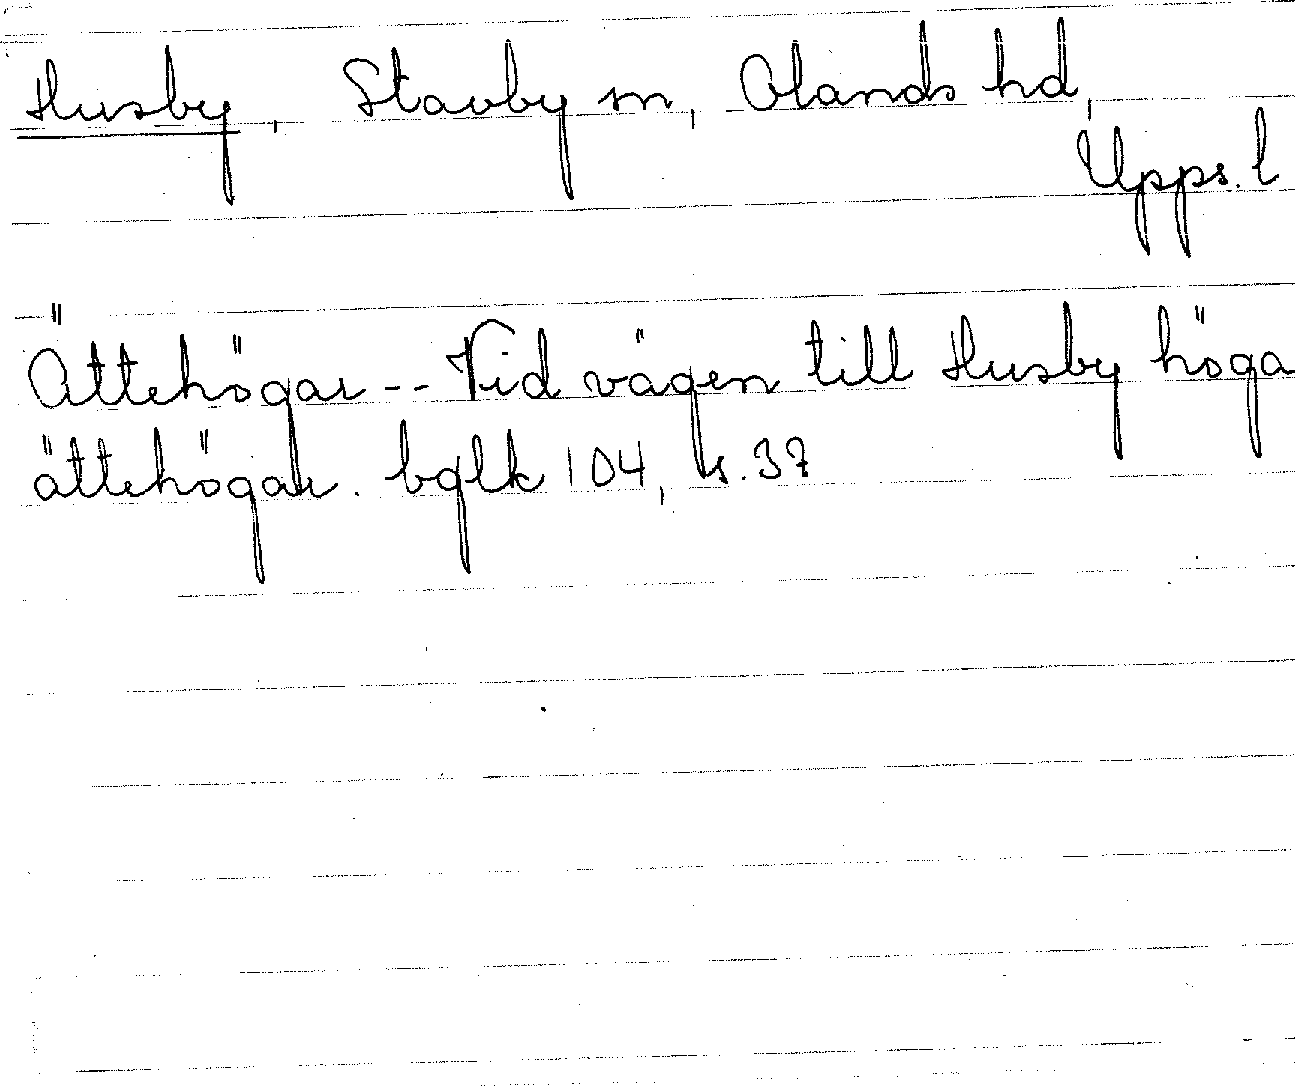 Husby, Stavby sn, Olands hd,
Upps. l
Ättehögar -- Vid vägen till Husby höga
ättehögar. bglk 104, s. 37